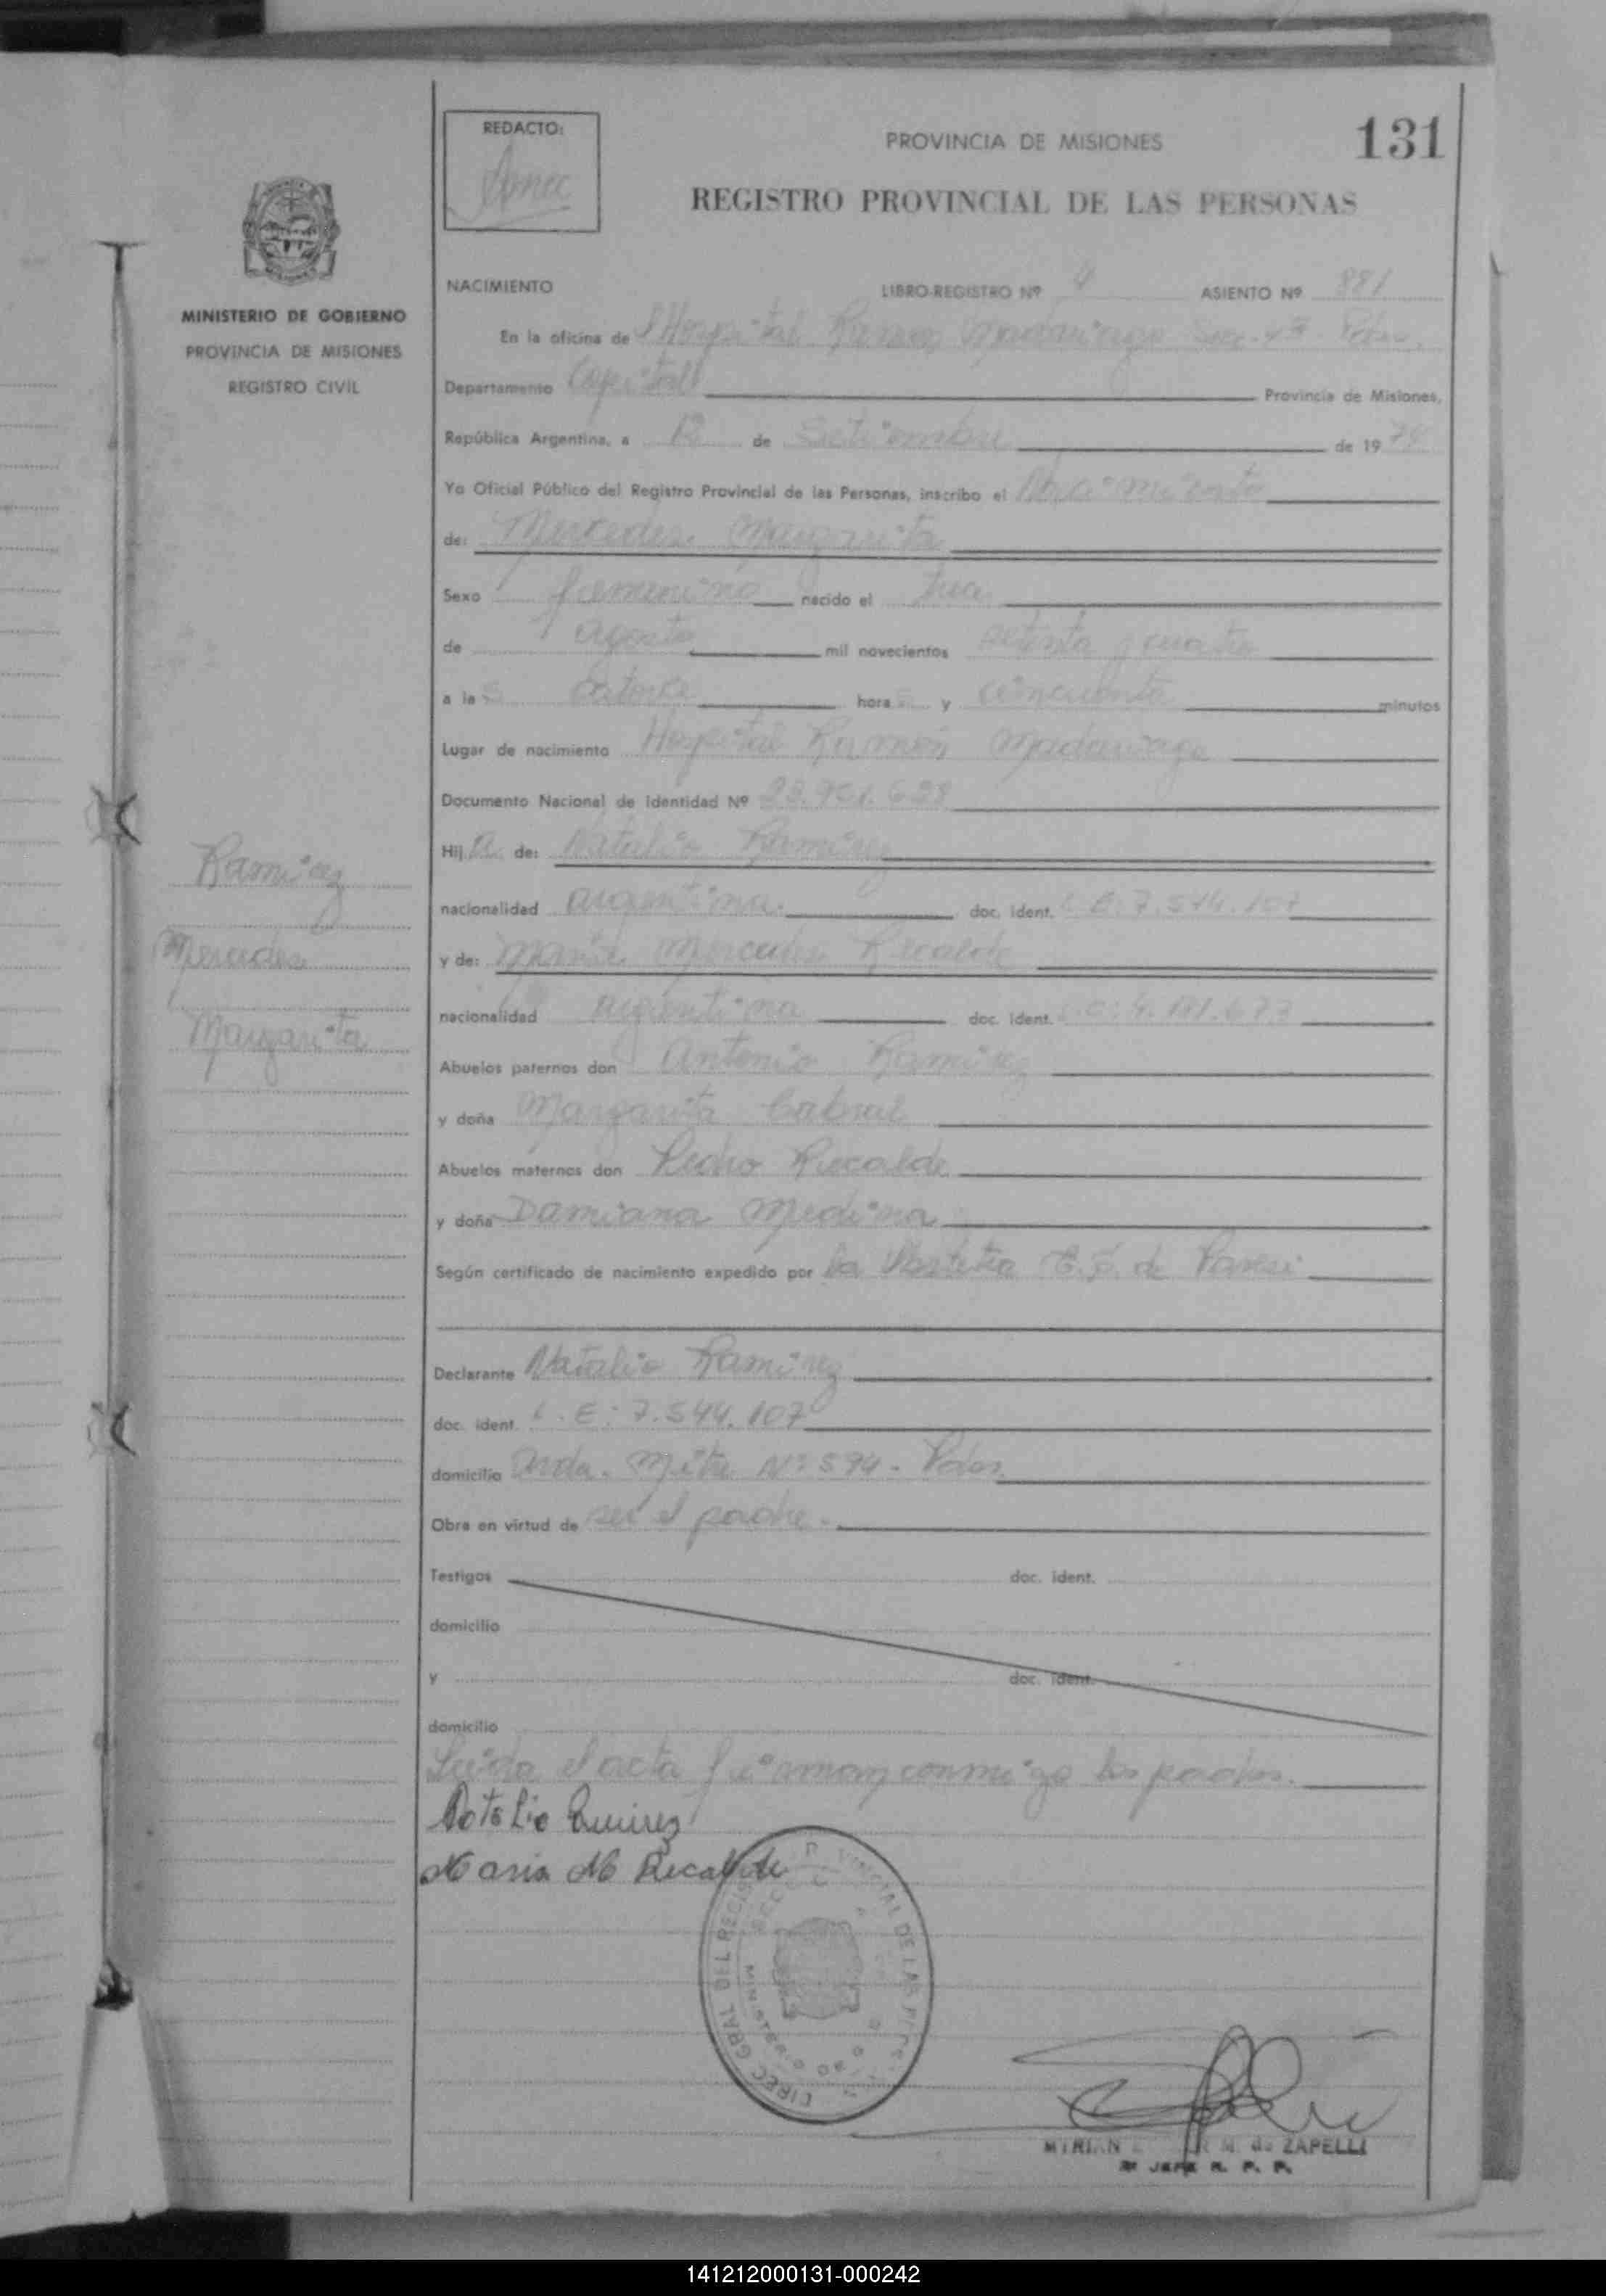 131
REDACTO:
PROVINCIA DE MISIONES
REGISTRO PROVINCIAL DE LAS PERSONAS
MINISTERIO DE GOBIERNO
PROVINCIA DE MISIONES
REGISTRO CIVIL
NACIMIENTO LIBRO-REGISTRO Nº 4 ASIENTO Nº 881
En la oficina de Hospital Ramon Madariaga Secc. 4ta
Departamento Capital Provincia de Misiones,
República Argentina, a 12 de Setiembre de 1974
Yo Oficial Público del Registro Provincial de las Personas, inscribo el Nacimiento
de: Mercedes Margarita
Sexo femenino nacido el tres
de agosto mil novecientos setenta y cuatro
a las catorce horas y cincuenta minutos
Lugar de nacimiento Hospital Ramón Madariaga
Documento Nacional de Identidad Nº
Hija de: Natalio Ramirez
nacionalidad argentina. doc. ident. L.E: 7.544.107
y de: María Mercedes Recalde
nacionalidad argentina doc. ident.
Abuelos paternos don Antonio Ramirez
y doña Margarita Cabral
Abuelos maternos don Pedro Recalde
y doña Damiana Medina
Según certificado de nacimiento expedido por la Partera
Declarante Natalio Ramirez
doc. ident. L.E: 7.544.107
domicilio Avda. Mitre Nº 594. Pdas.
Obra en virtud de ser el padre.
Testigos doc. ident.
domicilio
y doc. ident.
domicilio
Leída el acta firman conmigo los padres.
Natalio Ramirez
Maria M Recalde
Ramirez
Mercedes
Margarita
MIRIAN M. de ZAPELLI
JEFE R. P. P.
141212000131-000242